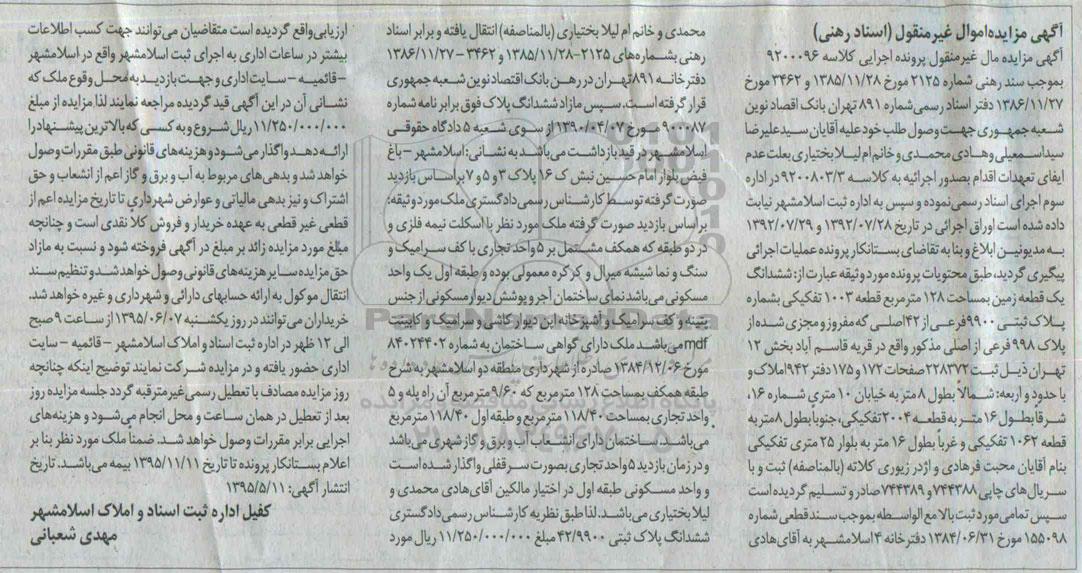 آگهی مزایده اموال غیرمنقول (اسناد رهنی)
آگهی مزایده مال غیرمنقول پرونده اجرایی کلاسه ۹۲۰۰۰۹۶
بموجب سند رهنی شماره ۲۱۲۵ مورخ ۱۳۸۵/۱۱/۲۸ و ۳۴۶۲ مورخ
۱۳۸۶/۱۱/۲۷ دفتر اسناد رسمی شماره ۸۹۱ تهران بانک اقتصاد نوین
شعبه جمهوری جهت وصول طلب خود علیه آقایان سید علیرضا
سیداسمعیلی و هادی محمدی و خانم ام لیلا بختیاری بعلت عدم
ایفای تعهدات اقدام بصدور اجرائیه به کلاسه ۹۲۰۰۸۰۳/۳ در اداره
سوم اجرای اسناد رسمی نموده و سپس به اداره ثبت اسلامشهر نیابت
داده شده است اوراق اجرائی در تاریخ ۱۳۹۲/۰۷/۲۸ و ۱۳۹۲/۰۷/۲۹
به مدیونین ابلاغ و بنا به تقاضای بستانکار پرونده عملیات اجرائی
پیگیری گردید، طبق محتویات پرونده مورد وثیقه عبارت از: ششدانگ
یک قطعه زمین بمساحت ۱۲۸ مترمربع قطعه ۱۰۰۳ تفکیکی بشماره
پلاک ثبتی ۹۹۰۰ فرعی از ۴۲ اصلی که مفروز و مجزی شده از
پلاک ۹۹۸ فرعی از اصلی مذکور واقع در قریه قاسم آباد بخش ۱۲
تهران ذیل ثبت ۲۲۸۳۷۲ صفحات ۱۷۲ و ۱۷۵ دفتر ۹۴۲ املاک و
با حدود و اربعه: شمالاً بطول ۸ متر به خیابان ۱۰ متری شماره ۱۶،
شرقا بطول ۱۶ متر به قطعه ۲۰۰۴ تفکیکی، جنوبا بطول ۸ متر به
قطعه ۱۰۶۲ تفکیکی و غربا بطول ۱۶ متر به بلوار ۲۵ متری تفکیکی
بنام آقایان محبت فرهادی و اژدر زیوری کلاته (بالمناصفه) ثبت و با
سریال های چاپی ۷۴۴۳۸۸ و ۷۴۴۳۸۹ صادر و تسلیم گردیده است
سپس تمامی مورد ثبت بالا مع الواسطه بموجب سند قطعی شماره
۱۵۵۰۹۸ مورخ ۱۳۸۴/۰۶/۳۱ دفترخانه ۴ اسلامشهر به آقای هادی
محمدی و خانم ام لیلا بختیاری (بالمناصفه) انتقال یافته و برابر اسناد
رهنی بشماره های ۲۱۲۵-۱۳۸۵/۱۱/۲۸ و ۳۴۶۲-۱۳۸۶/۱۱/۲۷
دفترخانه ۸۹۱ تهران در رهن بانک اقتصاد نوین شعبه جمهوری
قرار گرفته است. سپس مازاد ششدانگ پلاک فوق برابر نامه شماره
۹۰۰۰۸۷ مورخ ۱۳۹۰/۰۴/۰۷ از سوی شعبه ۵ دادگاه حقوقی
اسلامشهر در قید بازداشت می باشد به نشانی: اسلامشهر - باغ
فیض بلوار امام حسین نبش ک ۱۶ پلاک ۳ و ۵ و ۷ براساس بازدید
صورت گرفته توسط کارشناس رسمی دادگستری ملک مورد وثیقه:
براساس بازدید صورت گرفته ملک مورد نظر با اسکلت نیمه فلزی و
در دو طبقه که همکف مشتمل بر ۵ واحد تجاری با کف سرامیک و
سنگ و نما شیشه میرال و کرکره معمولی بوده و طبقه اول یک واحد
مسکونی می باشد نمای ساختمان آجر و پوشش دیوار مسکونی از جنس
پنبه و کف سرامیک و آشپزخانه این دیوار کاشی و سرامیک و کابینت
mdf می باشد ملک دارای گواهی ساختمان به شماره ۸۴۰۲۴۴۰۲
مورخ ۱۳۸۴/۱۲/۰۶ صادره از شهرداری منطقه دو اسلامشهر به شرح
طبقه همکف بمساحت ۱۲۸ مترمربع که ۹/۶۰ مترمربع آن راه پله و ۵
واحد تجاری بمساحت ۱۱۸/۴۰ مترمربع و طبقه اول ۱۱۸/۴۰ مترمربع
می باشد. ساختمان دارای انشعاب آب و برق و گاز شهری می باشد
و در زمان بازدید ۵ واحد تجاری بصورت سرقفلی واگذار شده است
و واحد مسکونی طبقه اول در اختیار مالکین آقای هادی محمدی و
لیلا بختیاری می باشد. لذا طبق نظریه کارشناس رسمی دادگستری
ششدانگ پلاک ثبتی ۴۲/۹۹۰۰ مبلغ ۱۱/۲۵۰/۰۰۰/۰۰۰ ریال مورد
ارزیابی واقع گردیده است متقاضیان می توانند جهت کسب اطلاعات
بیشتر در ساعات اداری به اجرای ثبت اسلامشهر واقع در اسلامشهر
-قائمیه - سایت اداری و جهت بازدید به محل وقوع ملک که
نشانی آن در این آگهی قید گردیده مراجعه نمایند لذا مزایده از مبلغ
۱۱/۲۵۰/۰۰۰/۰۰۰ ریال شروع و به کسی که بالاترین پیشنهاد را
ارائه دهد واگذار می شود و هزینه های قانونی طبق مقررات وصول
خواهد شد و بدهی های مربوط به آب و برق و گاز اعم از انشعاب و حق
اشتراک و نیز بدهی مالیاتی و عوارض شهرداری تا تاریخ مزایده اعم از
قطعی غیر قطعی به عهده خریدار و فروش کلا نقدی است و چنانچه
مبلغ مورد مزایده زائد بر مبلغ در آگهی فروخته شود و نسبت به مازاد
حق مزایده سایر هزینه های قانونی وصول خواهد شد و تنظیم سند
انتقال موکول به ارائه حسابهای دارائی و شهرداری و غیره خواهد شد.
خریداران می توانند در روز یکشنبه ۱۳۹۵/۰۶/۰۷ از ساعت ۹ صبح
الی ۱۲ ظهر در اداره ثبت اسناد و املاک اسلامشهر - قائمیه - سایت
اداری حضور یافته و در مزایده شرکت نمایند توضیح اینکه چنانچه
روز مزایده مصادف با تعطیل رسمی غیر مترقبه گردد جلسه مزایده روز
بعد از تعطیل در همان ساعت و محل انجام می شود و هزینه های
اجرایی برابر مقررات وصول خواهد شد. ضمناً ملک مورد نظر بنا بر
اعلام بستانکار پرونده تا تاریخ ۱۳۹۵/۱۱/۱۱ بیمه می باشد. تاریخ
انتشار آگهی: ۱۳۹۵/۵/۱۱
کفیل اداره ثبت اسناد و املاک اسلامشهر
مهدی شعبانی
ParsNamadData